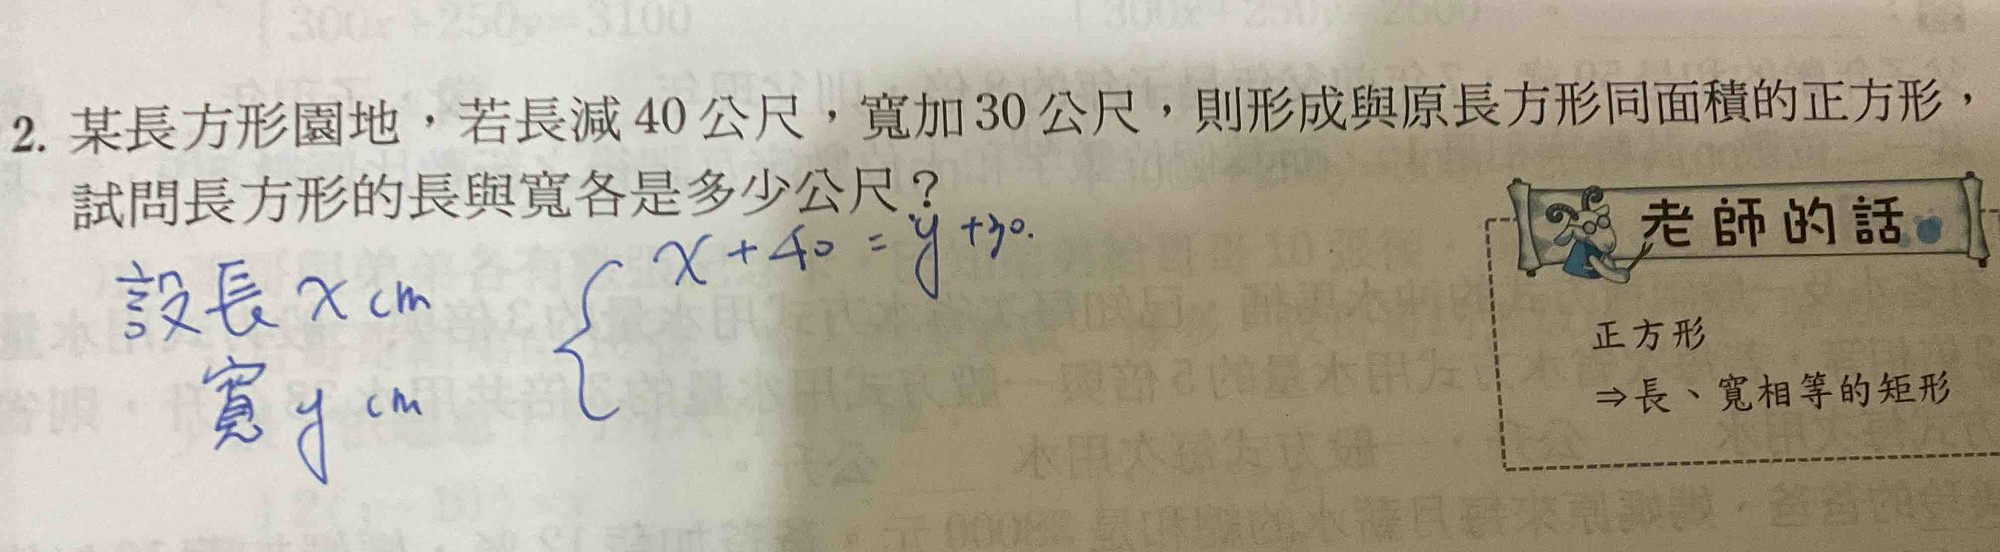 2. 某長方形園地，若長減40公尺，寬加30公尺，則形成與原長方形同面積的正方形，
試問長方形的長與寬各是多少公尺？
設長 x cm
寬 y cm
{ x + 40 = y + 30.
老師的話
正方形
⇒長、寬相等的矩形